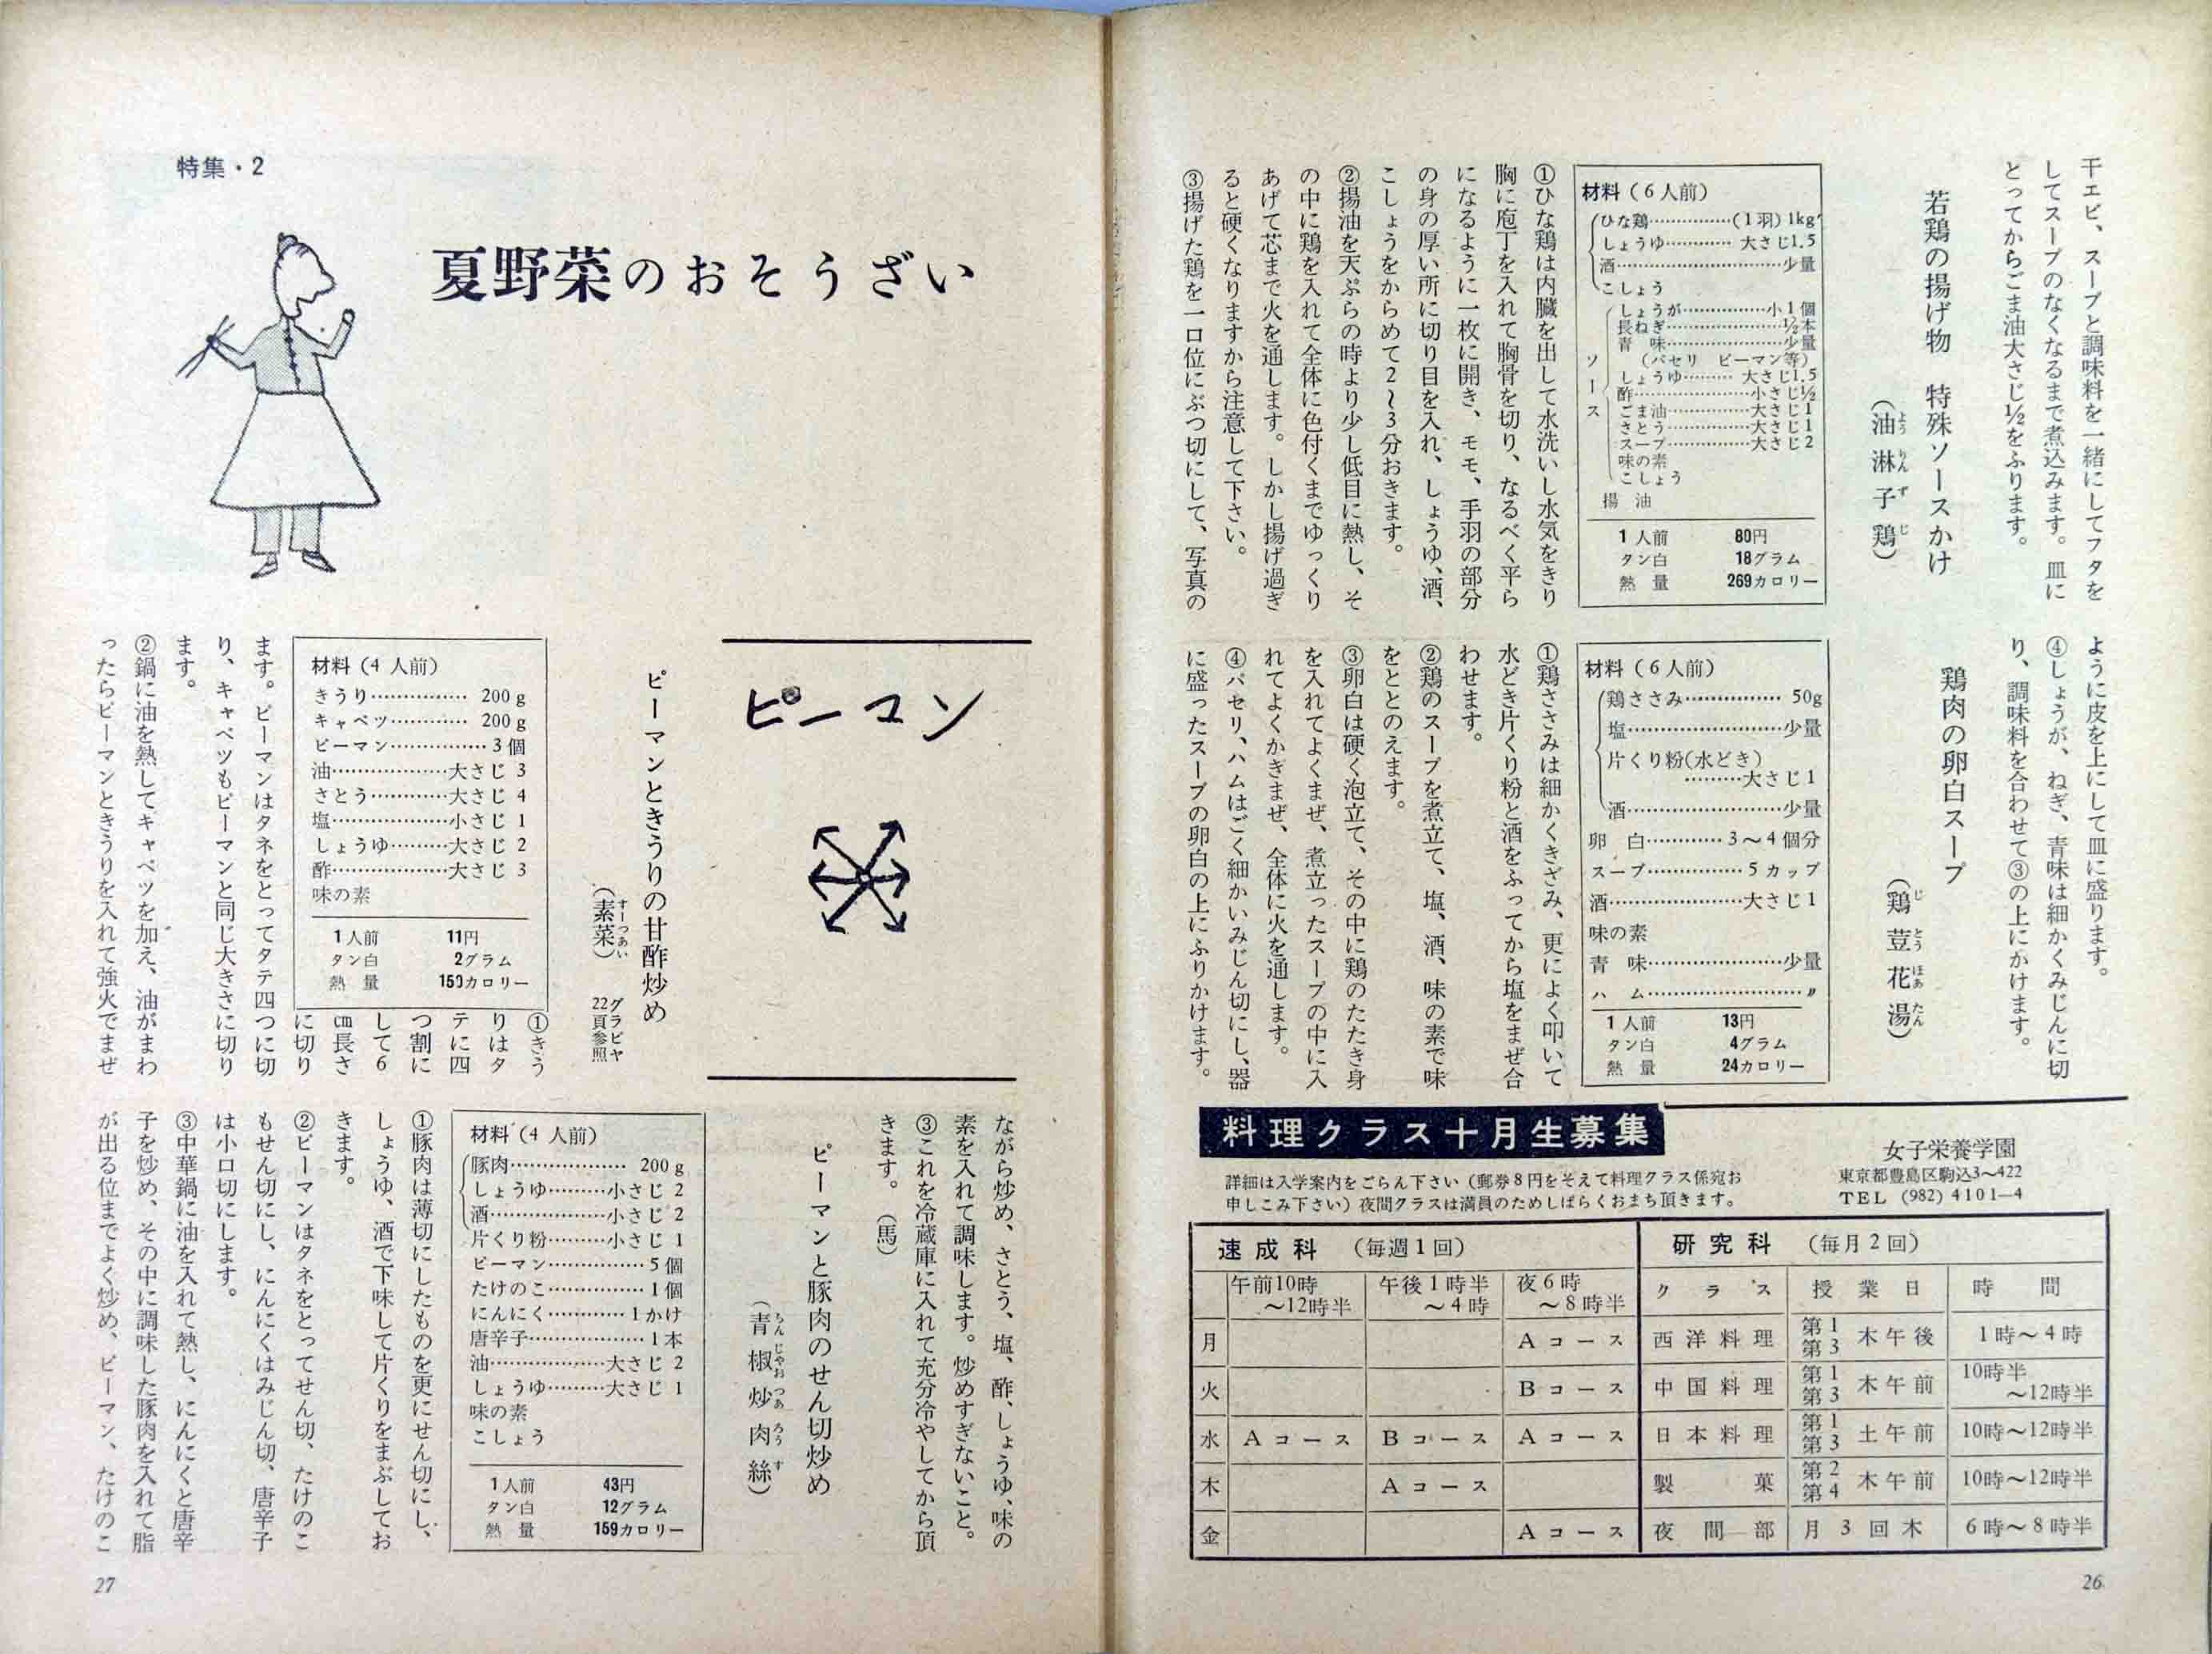 干エビ、スープと調味料を一緒にしてフタを
してスープのなくなるまで煮込みます。皿に
とってからごま油大さじ½をふります。
若鶏の揚げ物 特殊ソースかけ
(油淋子鶏)
よう りん ず じ
材料(6人前)
ひな鶏……………(1羽)1kg
しょうゆ…………大さじ1.5
酒……………………少量
こしょう
ソース
しょうが……………小1個
長ねぎ………………½本
青味…………………少量
(パセリ ピーマン等)
しょうゆ………大さじ1.5
酢…………………小さじ½
ごま油……………大さじ1
さとう……………大さじ1
スープ……………大さじ2
味の素
こしょう
揚油
1人前 80円
タン白 18グラム
熱量 269カロリー
①ひな鶏は内臓を出して水洗いし水気をきり
胸に庖丁を入れて胸骨を切り、なるべく平ら
になるように一枚に開き、モモ、手羽の部分
の身の厚い所に切り目を入れ、しょうゆ、酒、
こしょうをからめて2〜3分おきます。
②揚油を天ぷらの時より少し低目に熱し、そ
の中に鶏を入れて全体に色付くまでゆっくり
あげて芯まで火を通します。しかし揚げ過ぎ
ると硬くなりますから注意して下さい。
③揚げた鶏を一口位にぶつ切にして、写真の
ように皮を上にして皿に盛ります。
④しょうが、ねぎ、青味は細かくみじんに切
り、調味料を合わせて③の上にかけます。
鶏肉の卵白スープ
(鶏荳花湯)
じ とう ほあ たん
材料(6人前)
鶏ささみ……………50g
塩……………………少量
片くり粉(水どき)
………大さじ1
酒……………………少量
卵白…………3〜4個分
スープ……………5カップ
酒…………………大さじ1
味の素
青味…………………少量
ハム……………………〃
1人前 13円
タン白 4グラム
熱量 24カロリー
①鶏ささみは細かくきざみ、更によく叩いて
水どき片くり粉と酒をふってから塩をまぜ合
わせます。
②鶏のスープを煮立て、塩、酒、味の素で味
をととのえます。
③卵白は硬く泡立て、その中に鶏のたたき身
を入れてよくまぜ、煮立ったスープの中に入
れてよくかきまぜ、全体に火を通します。
④パセリ、ハムはごく細かいみじん切にし、器
に盛ったスープの卵白の上にふりかけます。
料理クラス十月生募集
詳細は入学案内をごらん下さい(郵券8円をそえて料理クラス係宛お
申しこみ下さい)夜間クラスは満員のためしばらくおまち頂きます。
女子栄養学園
東京都豊島区駒込3〜422
TEL (982) 4101—4
速成科 (毎週1回)
午前10時〜12時半 午後1時半〜4時 夜6時〜8時半
月 Aコース
火 Bコース
水 Aコース Bコース Aコース
木 Aコース
金 Aコース
研究科 (毎月2回)
クラス 授業日 時間
西洋料理 第1第3 木午後 1時〜4時
中国料理 第1第3 木午前 10時半〜12時半
日本料理 第1第3 土午前 10時〜12時半
製菓 第2第4 木午前 10時〜12時半
夜間部 月3回木 6時〜8時半
26
特集・2
夏野菜のおそうざい
ピーマン
ピーマンときうりの甘酢炒め
(素菜)
すーつあい
グラビヤ
22頁参照
材料(4人前)
きうり……………200g
キャベツ…………200g
ピーマン……………3個
油………………大さじ3
さとう…………大さじ4
塩………………小さじ1
しょうゆ………大さじ2
酢………………大さじ3
味の素
1人前 11円
タン白 2グラム
熱量 150カロリー
①きう
りはタ
テに四
つ割に
して6
cm長さ
に切り
ます。ピーマンはタネをとってタテ四つに切
り、キャベツもピーマンと同じ大きさに切り
ます。
②鍋に油を熱してキャベツを加え、油がまわ
ったらピーマンときうりを入れて強火でまぜ
ながら炒め、さとう、塩、酢、しょうゆ、味の
素を入れて調味します。炒めすぎないこと。
③これを冷蔵庫に入れて充分冷やしてから頂
きます。 (馬)
ピーマンと豚肉のせん切炒め
(青椒炒肉絲)
ちん じゃお つあ ろう す
材料(4人前)
豚肉………………200g
しょうゆ………小さじ2
酒………………小さじ2
片くり粉………小さじ1
ピーマン……………5個
たけのこ……………1個
にんにく…………1かけ
唐辛子………………1本
油………………大さじ2
しょうゆ………大さじ1
味の素
こしょう
1人前 43円
タン白 12グラム
熱量 159カロリー
①豚肉は薄切にしたものを更にせん切にし、
しょうゆ、酒で下味して片くりをまぶしてお
きます。
②ピーマンはタネをとってせん切、たけのこ
もせん切にし、にんにくはみじん切、唐辛子
は小口切にします。
③中華鍋に油を入れて熱し、にんにくと唐辛
子を炒め、その中に調味した豚肉を入れて脂
が出る位までよく炒め、ピーマン、たけのこ
27